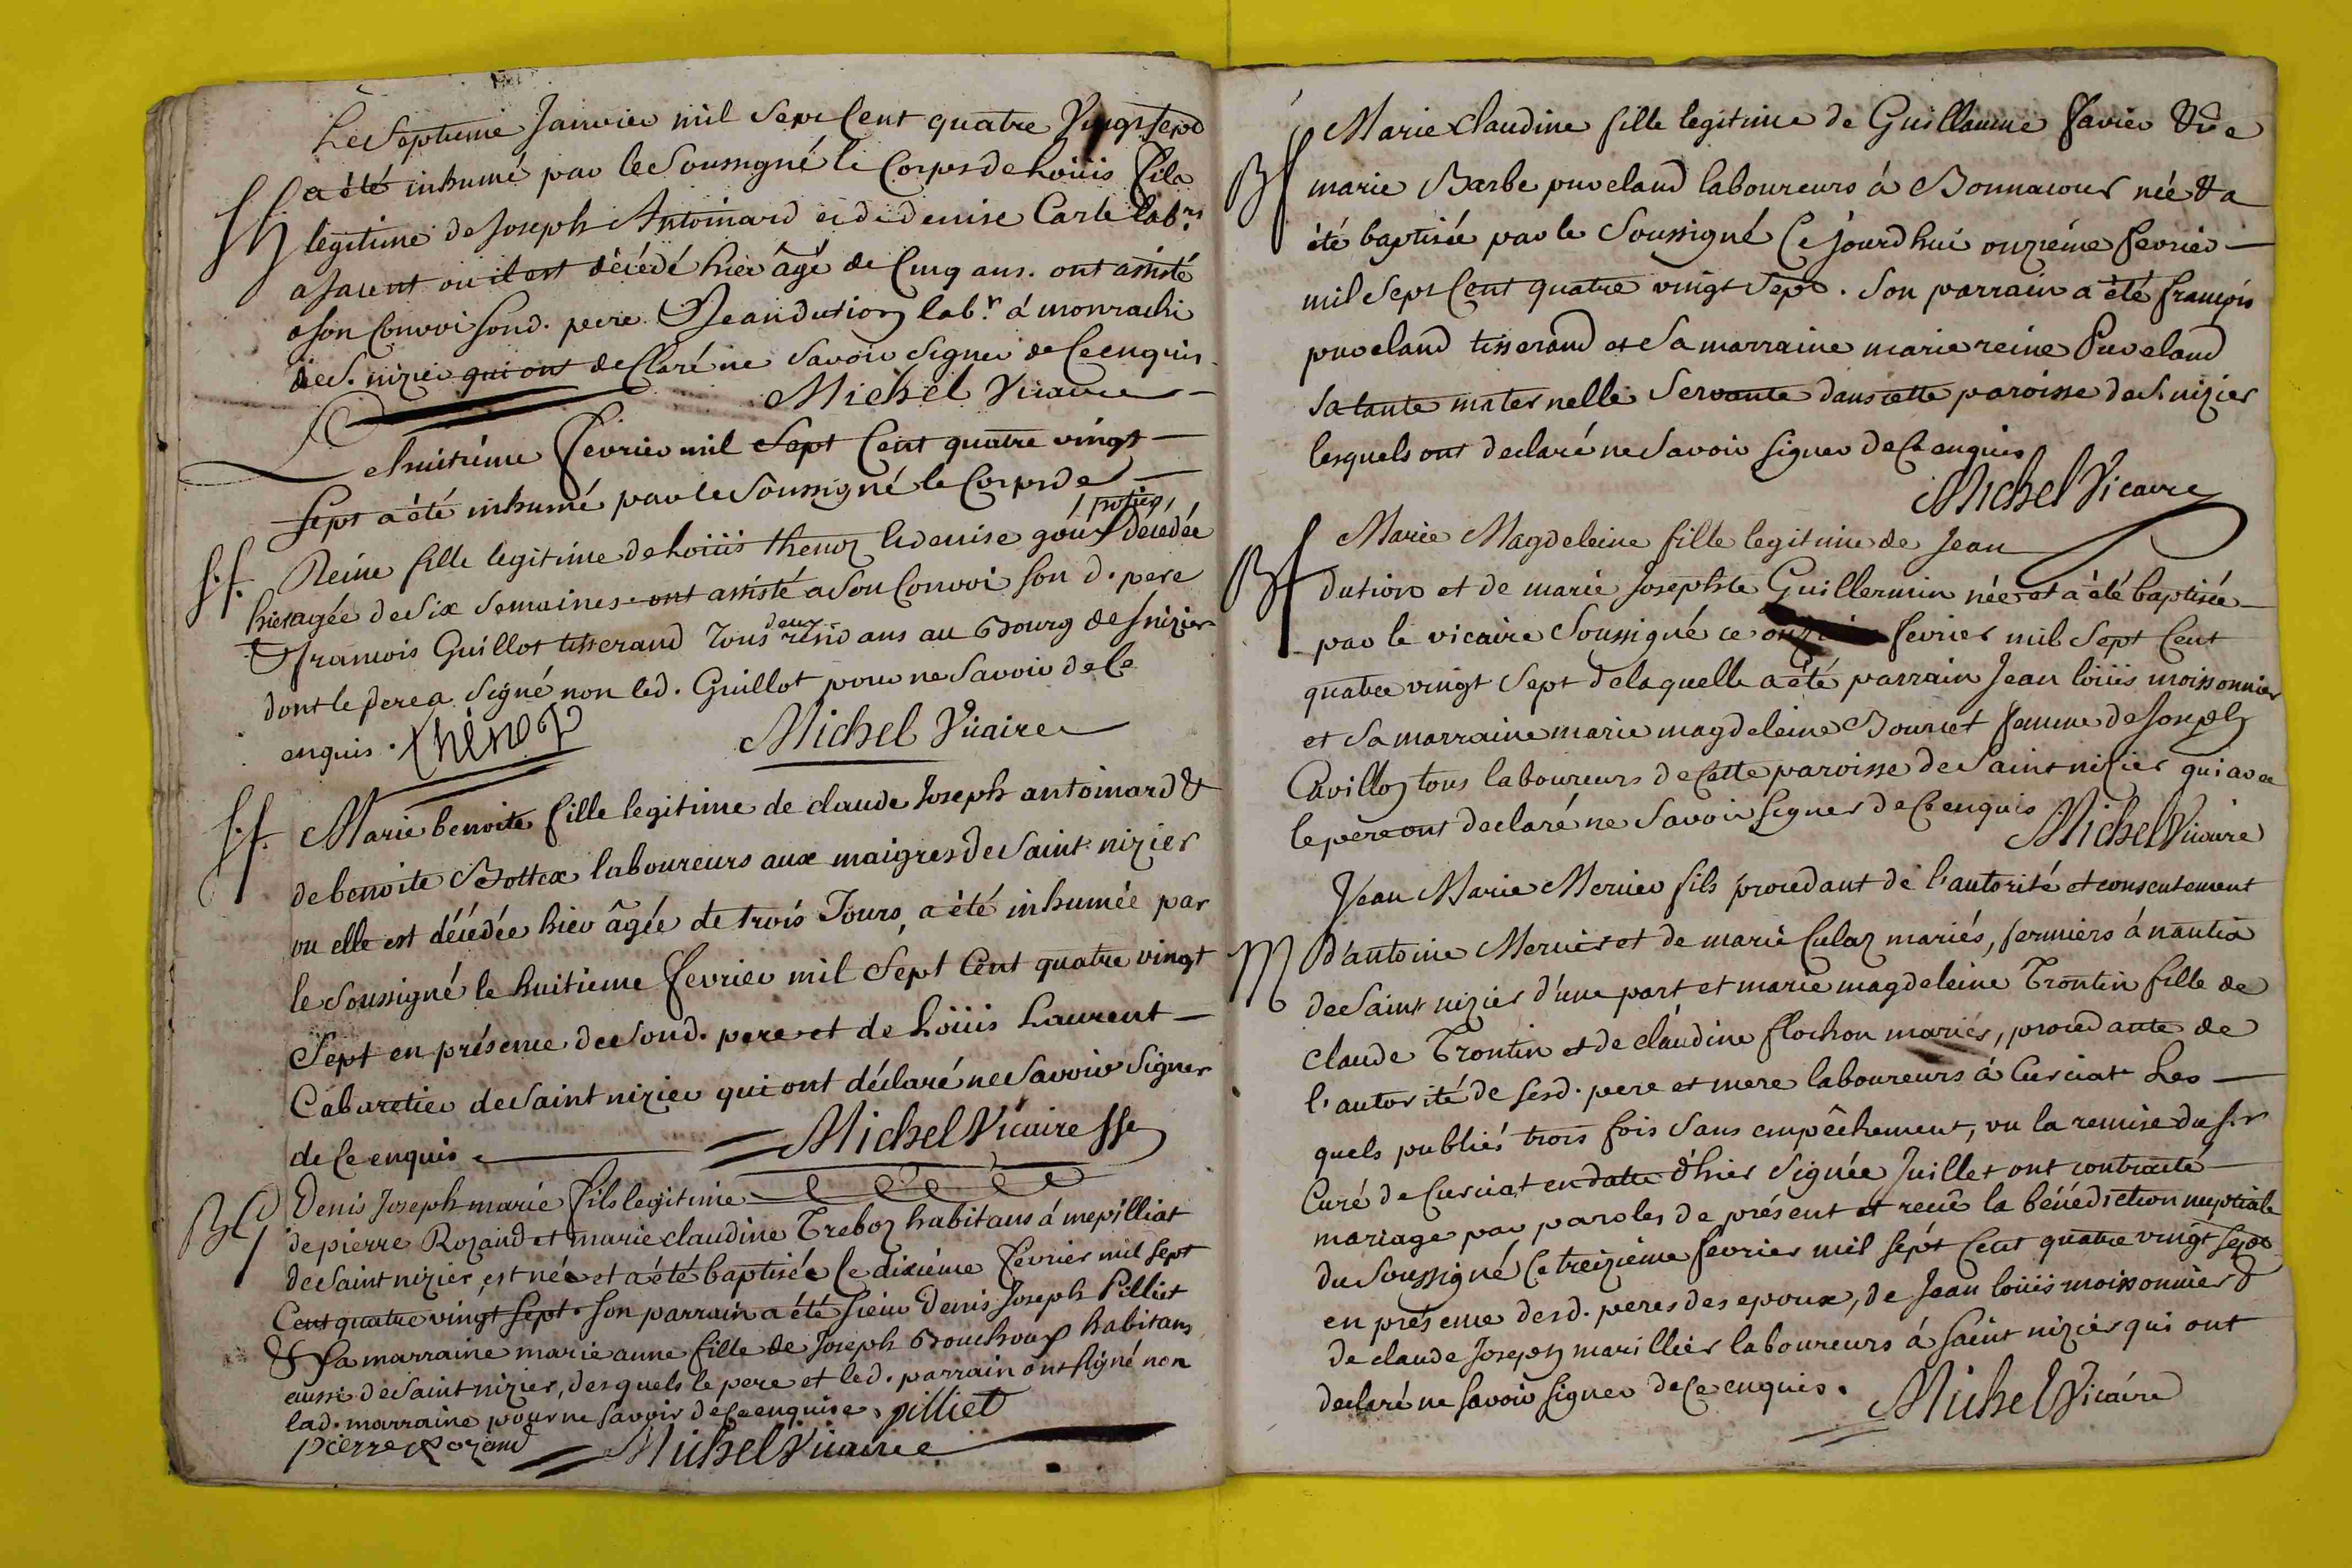 Le Septieme Janvier mil Sept Cent quatre Vingt Sept
a été inhumé par le Soussigné le Corps de Loüis fils
legitime de Joseph Antoinard et de denise Carle labrs
ou il est décédé hier âgé de Cinq ans. ont assisté
a son Convoi sond. pere & Jean dution labr. á monrachi
de S. nizier qui ont declaré ne Savoir Signer de Ce enquis
Michel Vicaire
Le huitiéme fevrier mil Sept Cent quatre vingt
Sept a été inhumé par le Soussigné le Corps de
potier
f.f. Reine fille legitime de Loüis thenoz & denise décédée
hier agée de Six Semaines. ont assisté a Son Convoi son d. pere
& francois Guillot tisserand Tous deux residans au Bourg de S nizier
dont le pere a Signé non led. Guillot pour ne Savoir de Ce
enquis. thénoz Michel Vicaire
f.f. Marie benoite fille legitime de claude Joseph antoinard &
de benoite Bottex laboureurs aux maigres de Saint nizier
ou elle est décédée hier âgée de trois Jours, a été inhumée par
le Soussigné le huitieme fevrier mil Sept Cent quatre vingt
Sept en présence de Sond. pere et de Loüis Laurent
Cabaretier de Saint nizier qui ont déclaré ne Savoir Signer
de Ce enquis. Michel Vicaire
BG Denis Joseph marie fils legitime
de pierre Rozand et marie claudine Treboz habitans á mepilliat
de Saint nizier est née et a été baptisée le dixiéme fevrier mil Sept
Cent quatre vingt Sept. Son parrain a été Sieur Denis Joseph Pilliet
& Sa marraine marie anne fille de Joseph Bouchoux habitans
aussi de Saint nizier, desquels le pere et led. parrain ont signé non
lad. marraine pour ne Savoir de Ce enquise. pilliet
pierre Rozand Michel Vicaire
Marie Claudine fille legitime de Guillaume favier & de
Bf marie Barbe puveland laboureurs á Bonnacour née & a
été baptisée par le Soussigné Ce jourd hui onziéme fevrier
mil Sept Cent quatre vingt Sept. Son parrain a été françois
puveland tisserand et Sa marraine marie reine Puveland
Sa tante maternelle Servante dans cette paroisse de S. nizier
lesquels ont declaré ne Savoir Signer de Ce enquis
Michel Vicaire
Marie Magdeleine fille legitime de Jean
Bf dution et de marie Josephte Guillermin née et a été baptisée
par le vicaire Soussigné ce fevrier mil Sept Cent
quatre vingt Sept de laquelle a été parrain Jean loüis moissonnier
et Sa marraine marie magdeleine Bourcet femme de Joseph
Cavilloz tous laboureurs de Cette paroisse de Saint nizier qui avec
le pere ont declaré ne Savoir Signer de Ce enquis Michel Vicaire
Jean Marie Mercier fils procedant de l'autorité et consentement
M d'antoine Mercier et de marie Culaz mariés, fermiers á nantia
de Saint nizier d'une part et marie magdeleine Trontin fille de
claude Trontin et de claudine flochon mariés, procedante de
l'autorité de sesd. pere et mere laboureurs á Curciat Les
quels publiés trois fois Sans empêchement, vu la remise du S.r
Curé de Curciat en datte d'hier Signée Juillet ont contracté
mariage par paroles de présent et reçu la bénédiction nuptiale
du Soussigné Ce treizieme fevrier mil Sept Cent quatre vingt Sept
en présence desd. peres des epoux, de Jean loüis moissonnier &
de claude Joseph marillier laboureurs á Saint nizier qui ont
declaré ne Savoir Signer de Ce enquis. Michel Vicaire